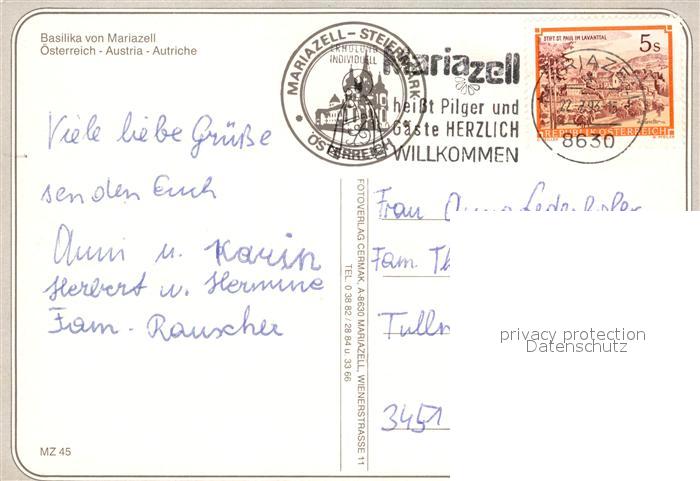 Basilika von Mariazell
Österreich - Austria - Autriche
MARIAZELL - STEIERMARK
ERHOLUNG
INDIVIDUELL
ÖSTERREICH
Mariazell
heißt Pilger und
Gäste HERZLICH
WILLKOMMEN
STIFT ST. PAUL IM LAVANTTAL
5s
REPUBLIK ÖSTERREICH
8630
Viele liebe Grüße
senden Euch
Anni u. Karin
Herbert u. Hermine
Fam. Rauscher
Frau
Fam.
3451
FOTOVERLAG CERMAK, A-8630 MARIAZELL, WIENERSTRASSE 11
TEL. 0 38 82 / 28 84 u. 33 66
privacy protection
Datenschutz
MZ 45